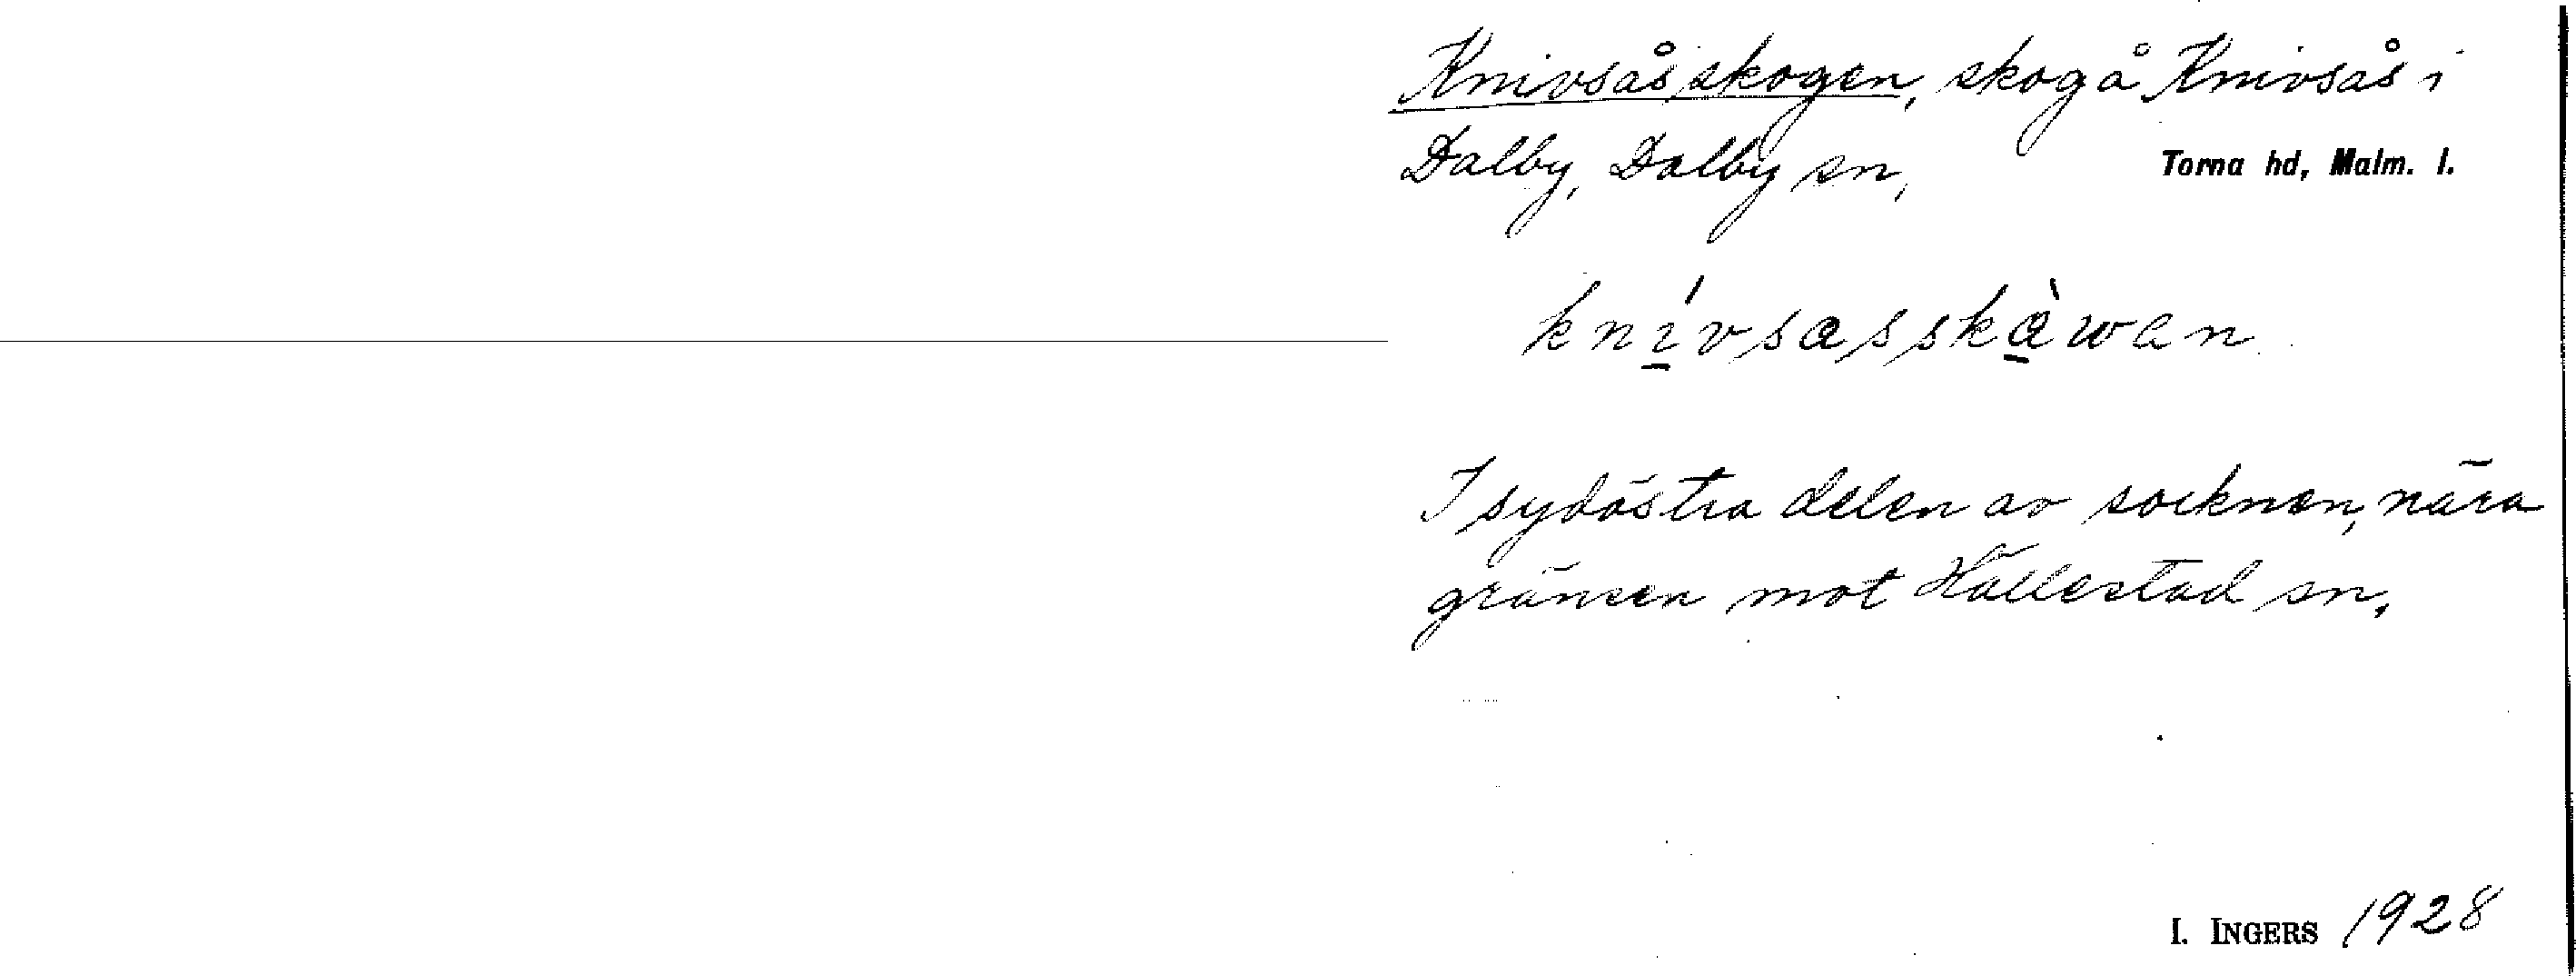 Knivsåsskogen, skog å Knivsås i
Dalby, Dalby sn, Torna hd, Malm. l.
knívsasskàwan
I sydöstra delen av socknen, nära
gränsen mot Hällestad sn.
I. INGERS 1928